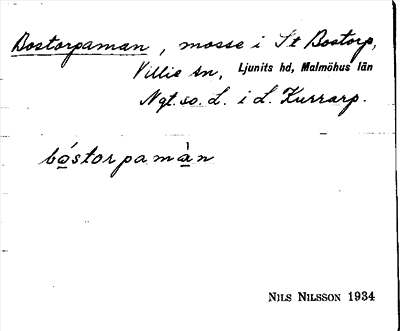 Bostorpaman, mosse i St Bostorp,
Villie sn, Ljunits hd, Malmöhus län
Ngt. so. L. i L. Kurrarp.
bó̲storpamà̲n
NILS NILSSON 1934